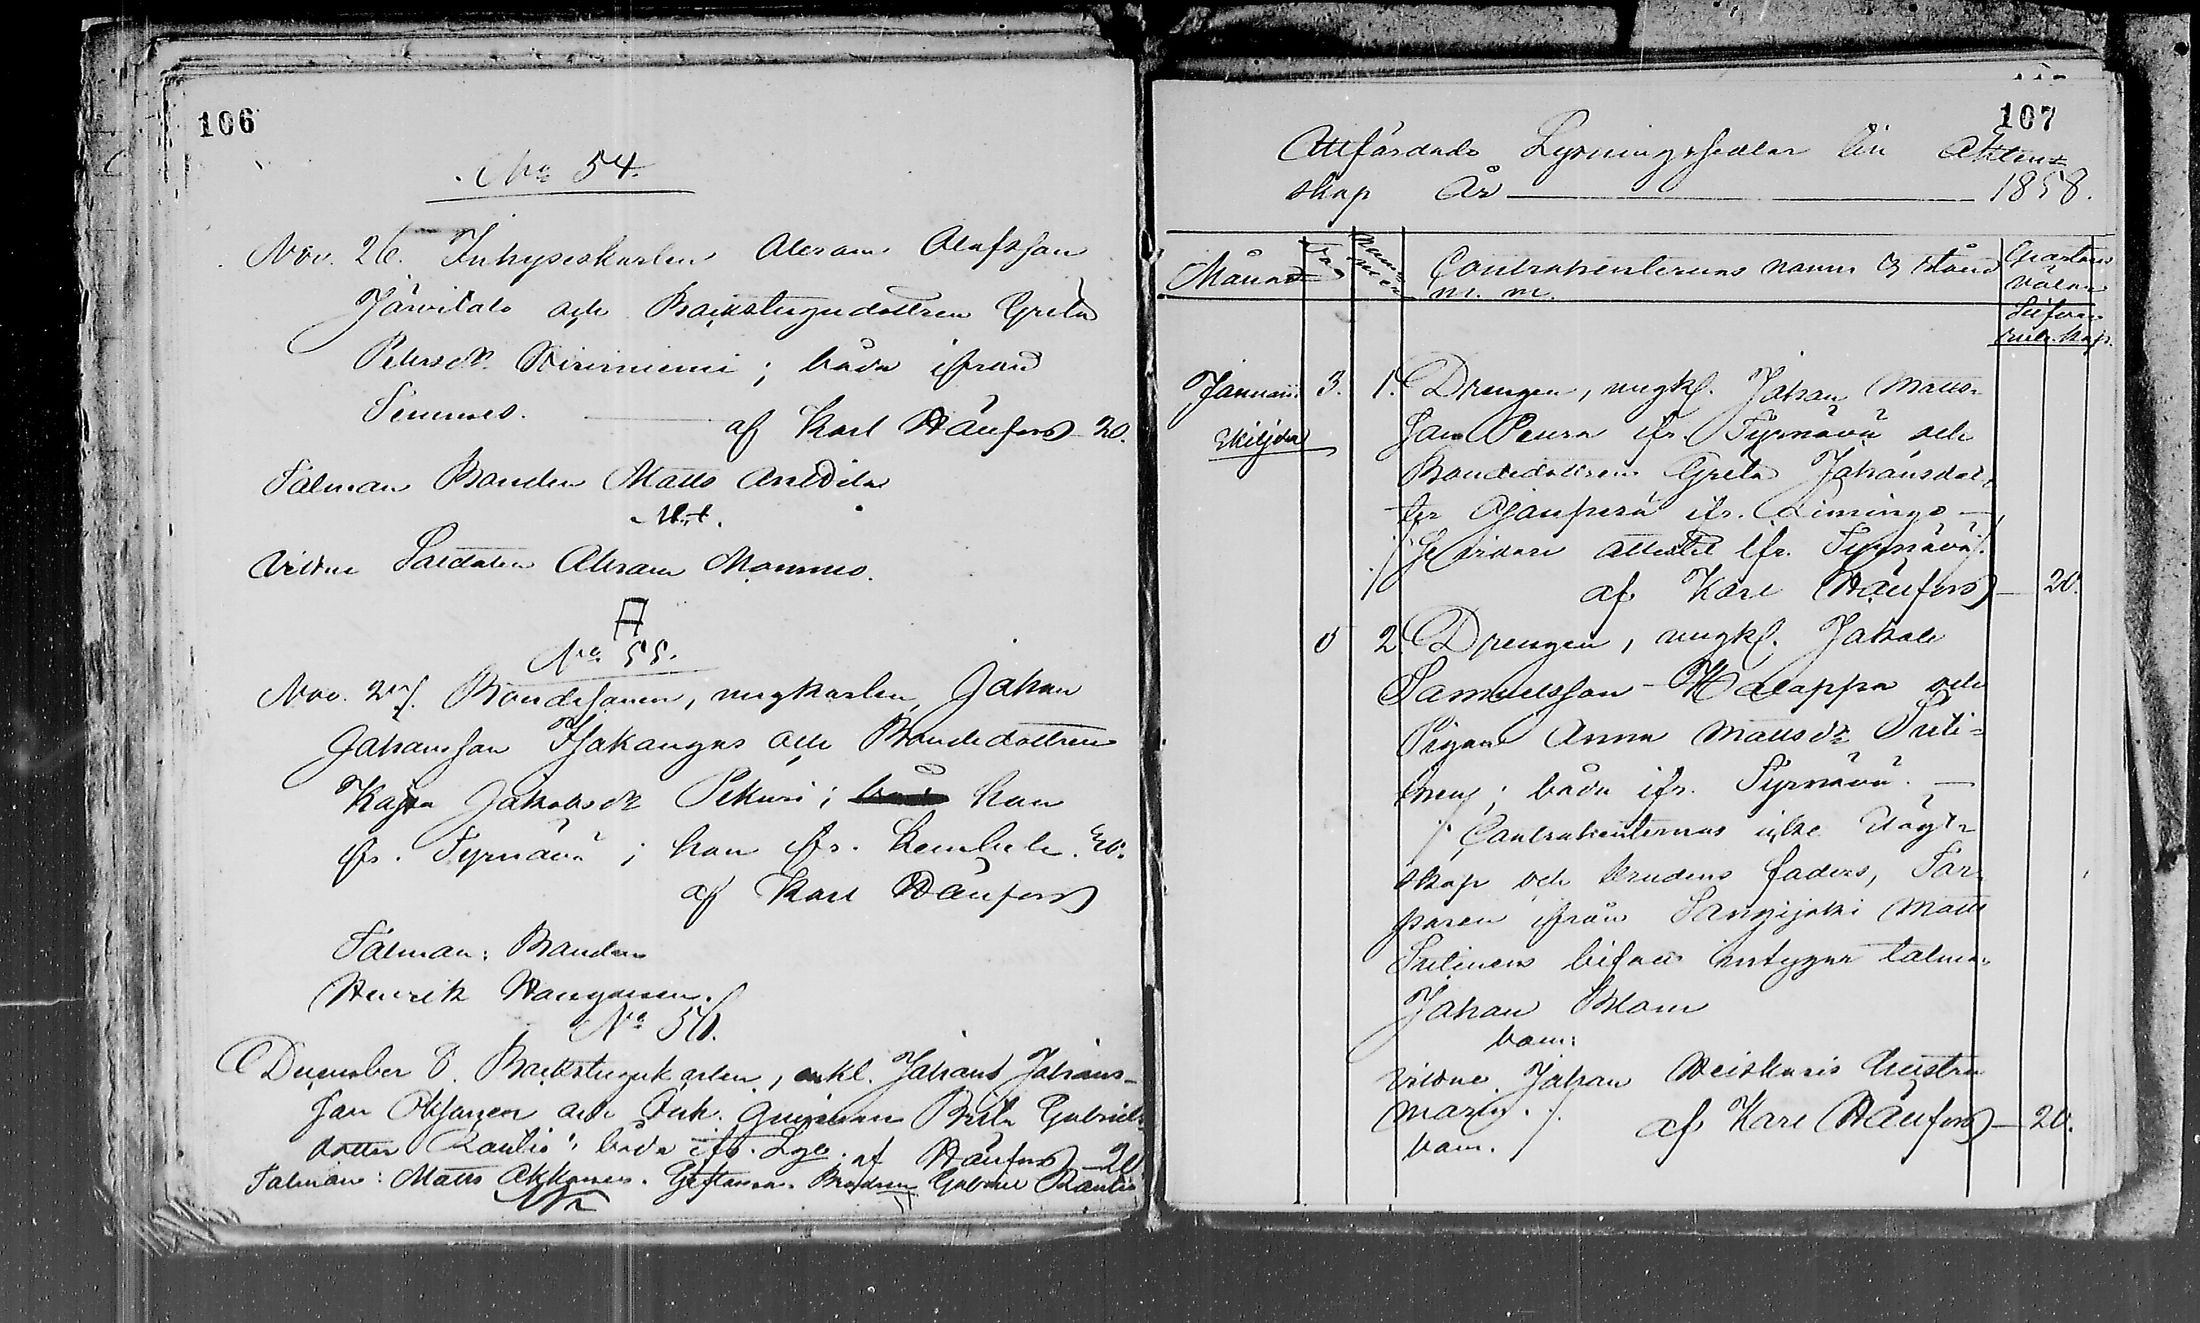 106
No 54.
Nov. 26. Inhyseskarlen Abram Olofsson
Järvitalo och Backstugudottren Greta
Petersdr Virinniemi; båda ifrån
Temmes. af Karl Hänfors 20.
Talman Bonden Matts Anttila
Mt.
Vittne Soldaten Abram Mommo.
No 55.
Nov. 27. Bondesonen, ungkarlen, Johan
Johansson Isokangas och Bondedottren
Kajsa Jakobsdr Pekuri; hon
ifr. Tyrnävä; han ifr. Kembele. 20.
af Karl Hänfors
Talman: Bonden
Henrik Haurynen.
No 56.
December 8. Backstugukarlen, enkl. Johans Johans-
son Oksanen och Enk. qvinnan Brita Gabriels
dotter Rautio; båda ifr. af Hänfors 20
Talman: Matts Akkanen. Giftoman. Bonden Gabriel Rautio
107
Utfärdade Lysningssedlar till Äkten-
skap År 1858.
Månad
Dag
Nummer
Contrahenternas namn & stånd
m. m.
Silfver
rub. kop.
Januari 3. 1. Drengen, ungkl. Johan Matts-
son Peura ifr. Tyrnävä och
Bondedottren Greta Johansdot-
ter Ojanperä ifr. Limingo
attestet ifr. Tyrnävä.
af Karl Hänfors 20.
Skiljda
5 2. Drengen, ungkl. Jakob
Samuelsson Halappa och
Pigan Anna Mattsdr Puti-
inen; båda ifr. Tyrnävä.
Contrahenternas icke skyld-
skap och brudens faders, Tor-
paren ifrån Sangijoki Matts
Putinens bifall intygar talman
Johan Blom
bom.
Vittne. Johan Heiskaris hustru
Maria.
bom.
af Karl Hänfors 20.